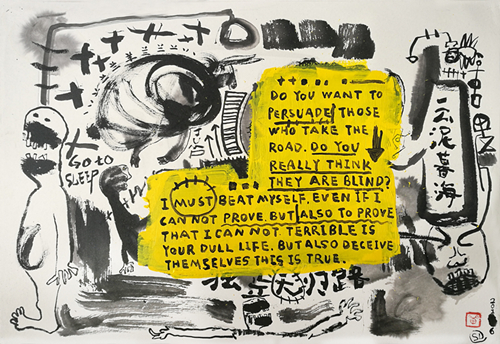 DO YOU WANT TO
PERSUADE THOSE
WHO TAKE THE
ROAD. DO YOU
REALLY THINK
THEY ARE BLIND?
I MUST BEAT MYSELF. EVEN IF I
CAN NOT PROVE. BUT ALSO TO PROVE
THAT I CAN NOT TERRIBLE IS
YOUR DULL LIFE. BUT ALSO DECEIVE
THEMSELVES THIS IS TRUE.
GO TO
SLEEP
云泥暮海
归路